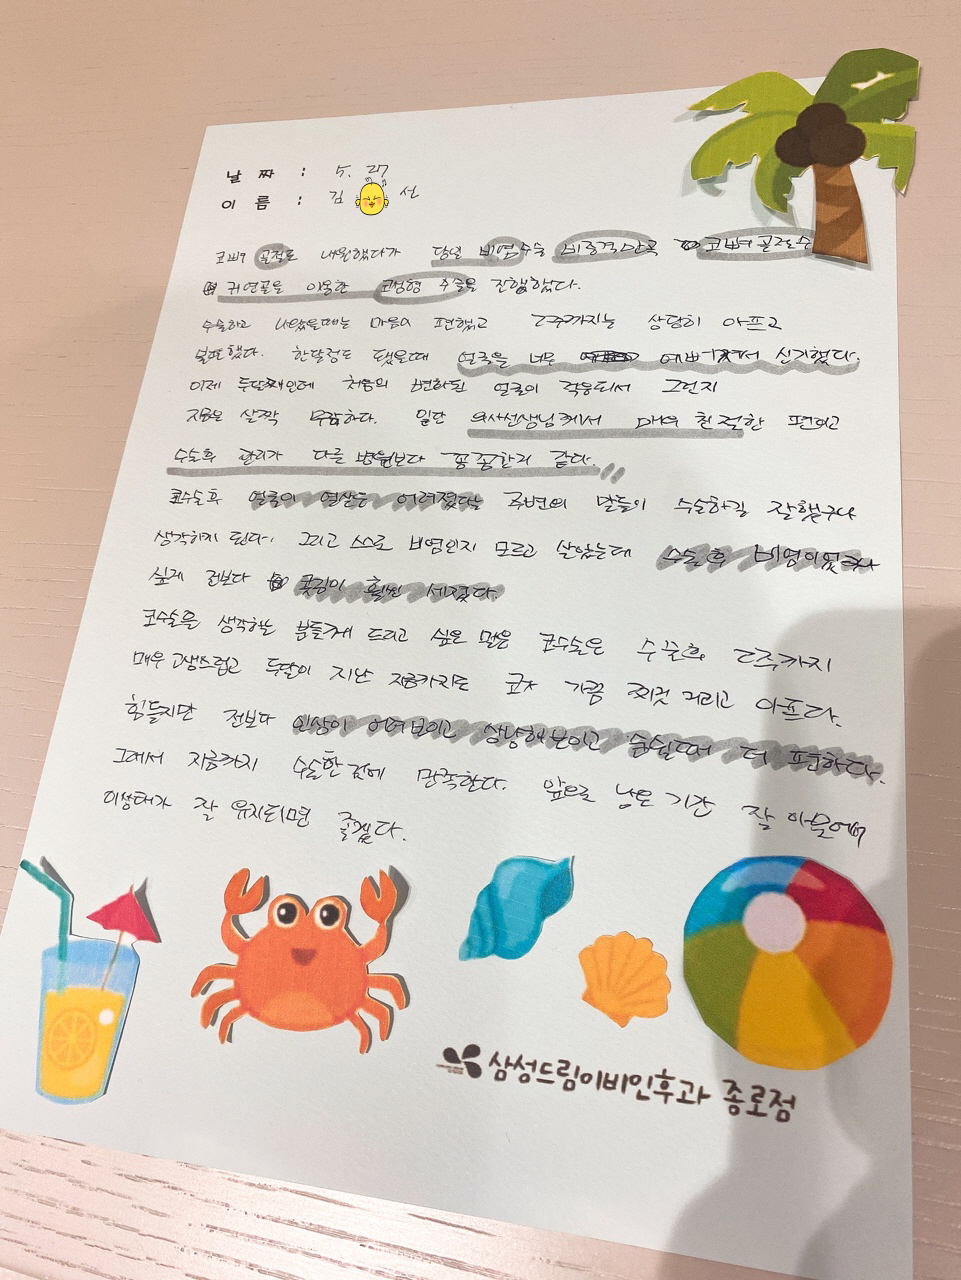 날 짜 : 5. 27
이 름 : 김 선
코뼈 골절로 내원했다가 당일 비염수술 비중격만곡 코뼈 골절수
귀연골을 이용한 코성형 수술을 진행했다.
수술하고 나왔을때는 마음이 편했고 2주까지는 상당히 아프고
불편했다. 한달정도 됐을때 얼굴은 너무 예뻐져서 신기했다.
이제 두달째인데 처음의 변화된 얼굴이 적응되서 그런지
지금은 살짝 무감하다. 일단 의사선생님께서 매우 친절한 편이고
수술후 관리가 다른 병원보다 꼼꼼한거 같다.
코수술후 얼굴이 열살은 어려졌다는 주변의 말들이 수술하길 잘했구나
생각하게 된다. 그리고 스스로 비염인지 모르고 살았는데 수술후 비염이었구나
싶게 전보다 콧김이 훨씬 세졌다.
코수술을 생각하는 분들게 드리고 싶은 말은 코수술은 수술후 2주까지
매우 고생스럽고 두달이 지난 지금까지도 코가 가끔 찌릿 거리고 아프다.
힘들지만 전보다 인상이 어려보이고 상냥해보이고 숨쉴때 더 편하다.
그래서 지금까지 수술한것에 만족한다. 앞으로 남은 기간 잘 아물어
이상태가 잘 유지되면 좋겠다.
삼성드림이비인후과 종로점